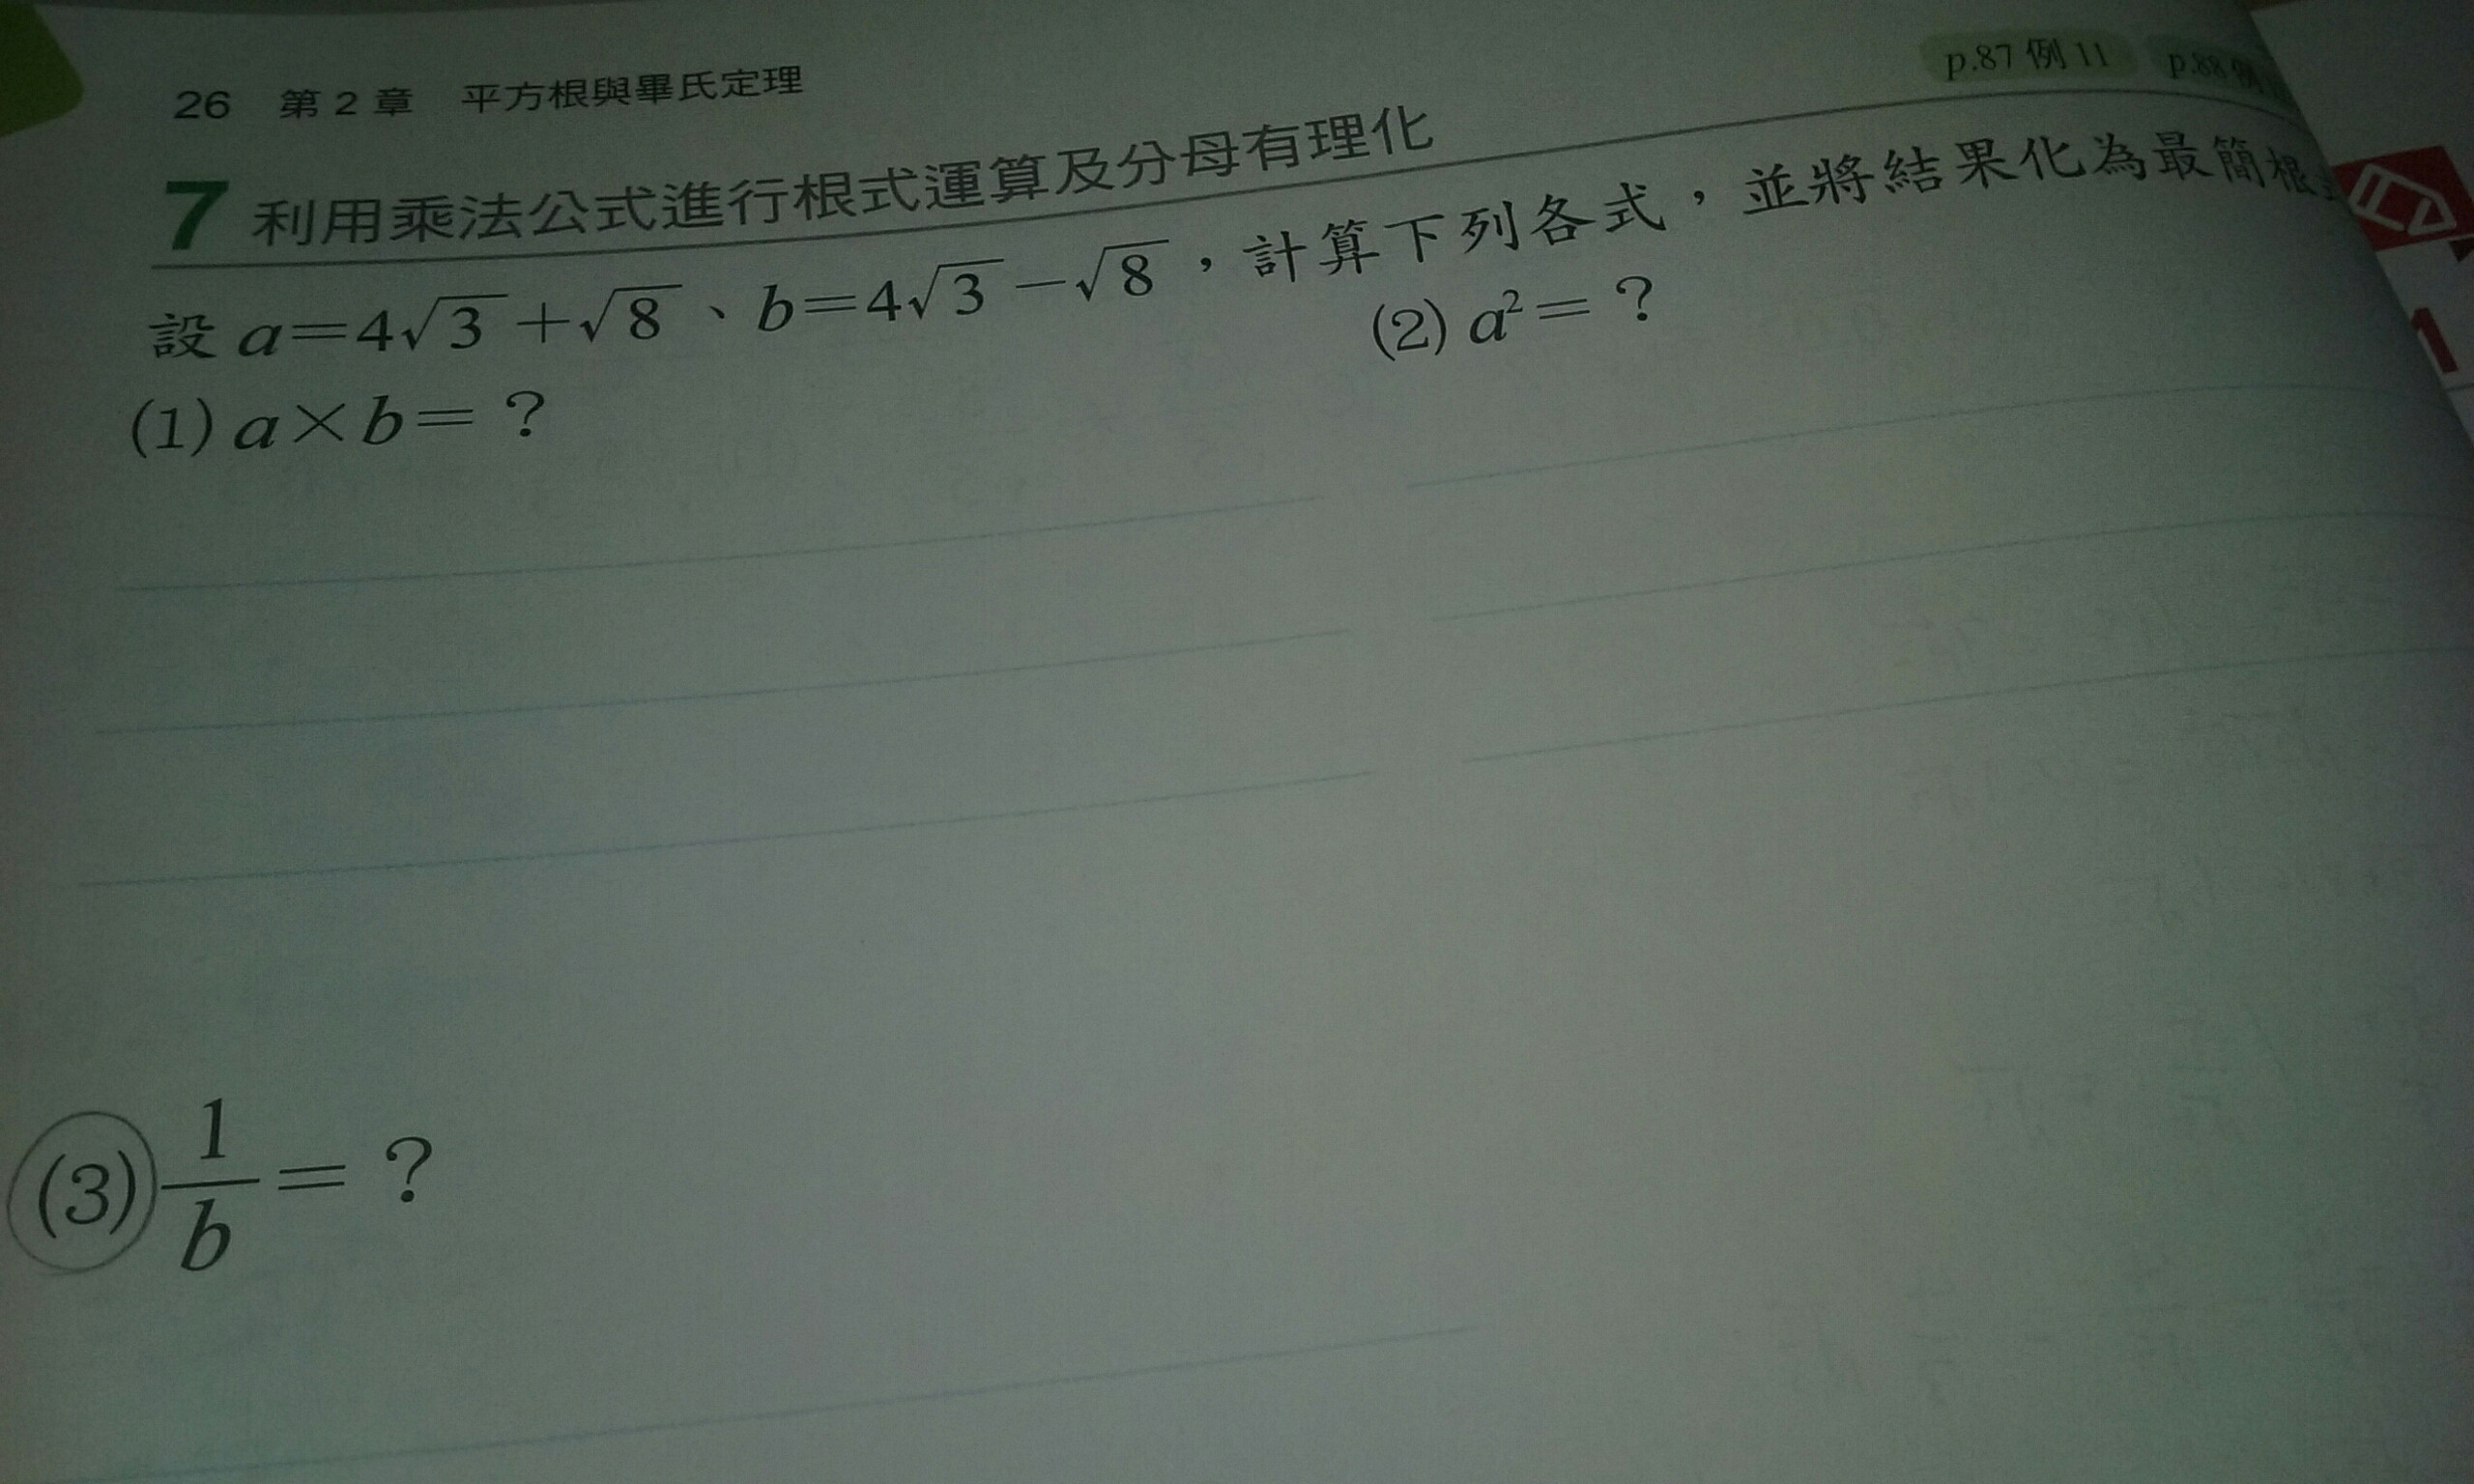 26 第 2 章 平方根與畢氏定理
p.87 例 11 p.88 例
7 利用乘法公式進行根式運算及分母有理化
設 a=4√3+√8、b=4√3-√8，計算下列各式，並將結果化為最簡根
(1) a×b=？
(2) a²=？
1
(3) 1/b=？